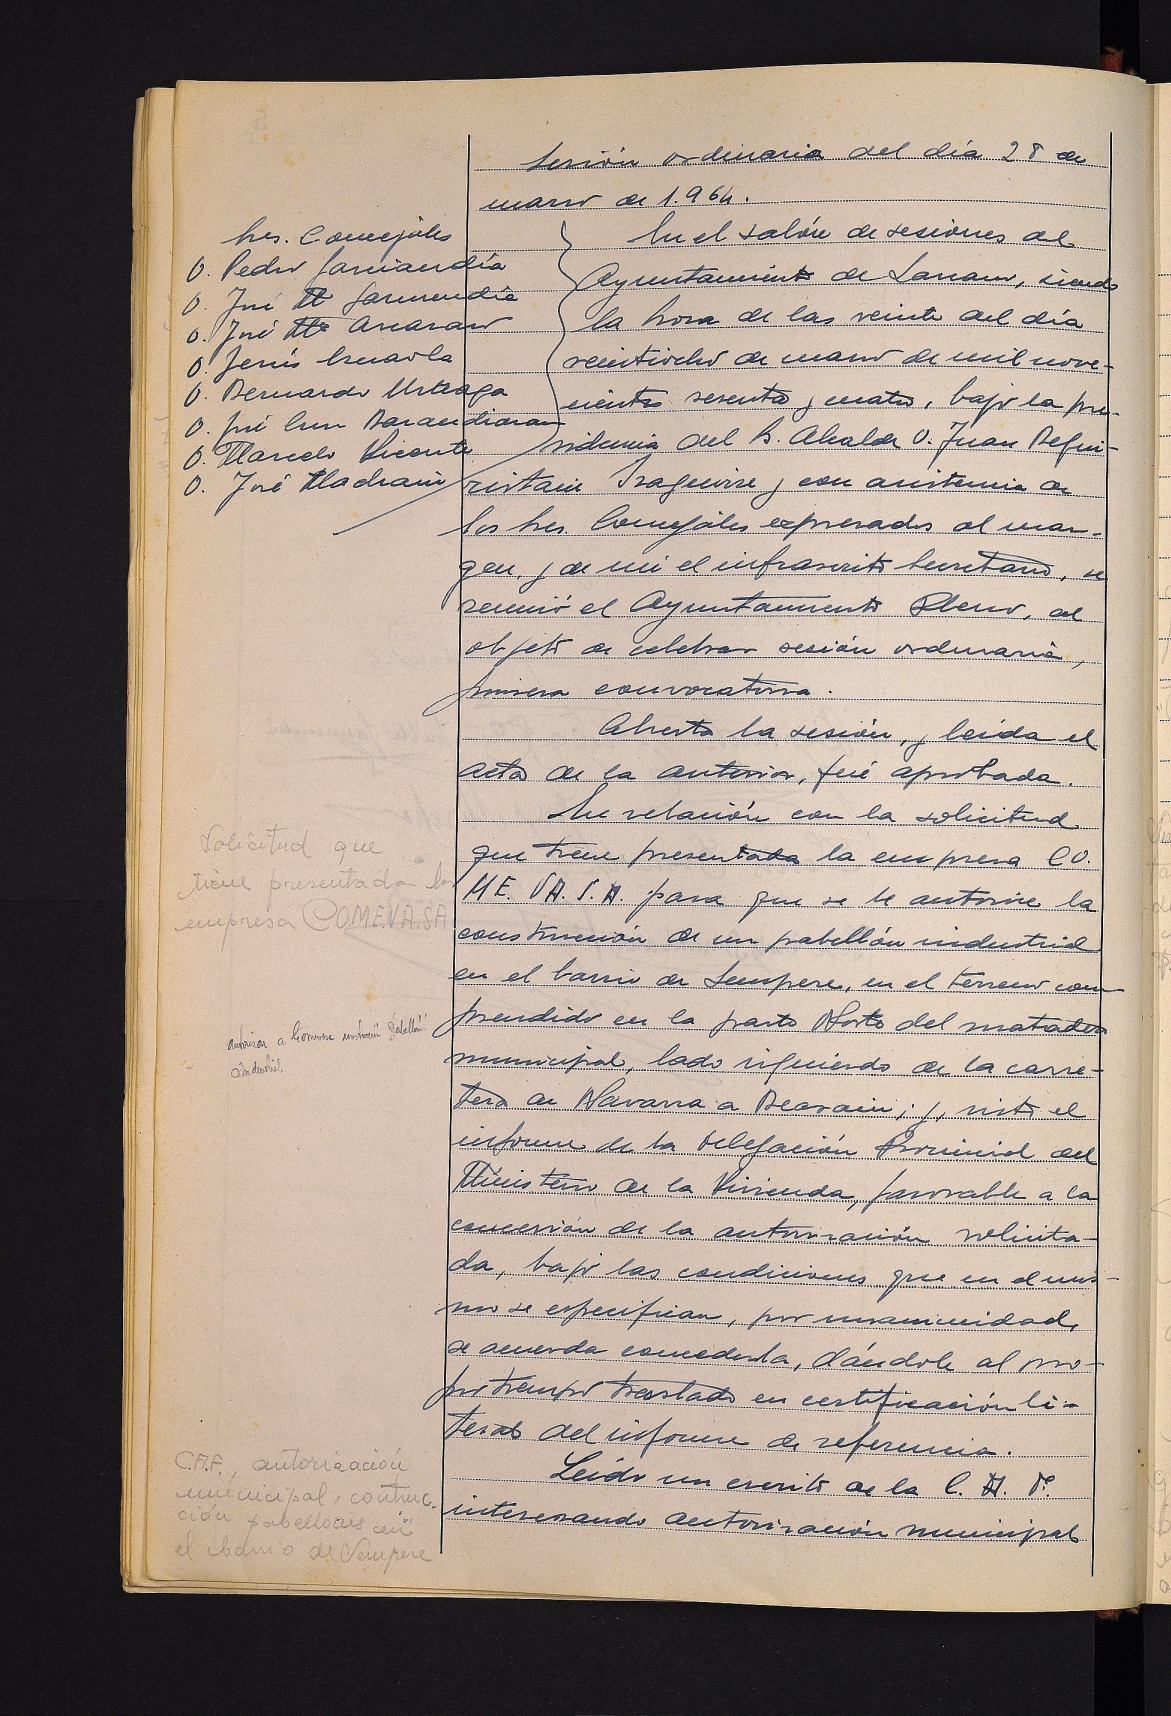 Sesión ordinaria del día 28 de
marzo de 1.964.
Sres. Concejales
D. Pedro Garciandía
D. José Mª Garmendia
D. José Mª Aracama
D. Jesús
D. Bernardo Urteaga
D. José Luis Barandiaran
D. Marcelo Vicente
D. José Madrazu
En el salón de sesiones del
Ayuntamiento de Lazcano, siendo
la hora de las veinte del día
veintiocho de marzo de mil nove-
cientos sesenta y cuatro, bajo la pre-
sidencia del Sr. Alcalde D. Juan Begui-
ristain Izaguirre y con asistencia de
los Sres. Concejales expresados al mar-
gen, y de mi el infrascrito Secretario, se
reunió el Ayuntamiento Pleno, al
objeto de celebrar sesión ordinaria,
primera convocatoria.
Abierta la sesión, y leida el
acta de la anterior, fué aprobada.
En relación con la solicitud
que tiene presentada la empresa CO.
ME. VA. S. A. para que se le autorice la
construcción de un pabellón industrial
en el barrio de Sempere, en el terreno com-
prendido en la parte Norte del matadero
municipal, lado izquierdo de la carre-
tera de Navarra a Beasain; y, visto el
informe de la Delegación Provincial del
Ministerio de la Vivienda, favorable a la
concesión de la autorización solicita-
da, bajo las condiciones que en el mis-
mo se especifican, por unanimidad,
se acuerda concederla, dándole al pro-
pio tiempo traslado en certificación li-
teral del informe de referencia.
Leído un escrito de la C. A. F.
interesando autorización municipal
Solicitud que
tiene presentada la
empresa COMEVA.SA
autorizar a Comeva construcción Pabellón
industrial.
C.A.F., autorización
municipal, contruc-
ción pabellones en
el barrio de Sempere